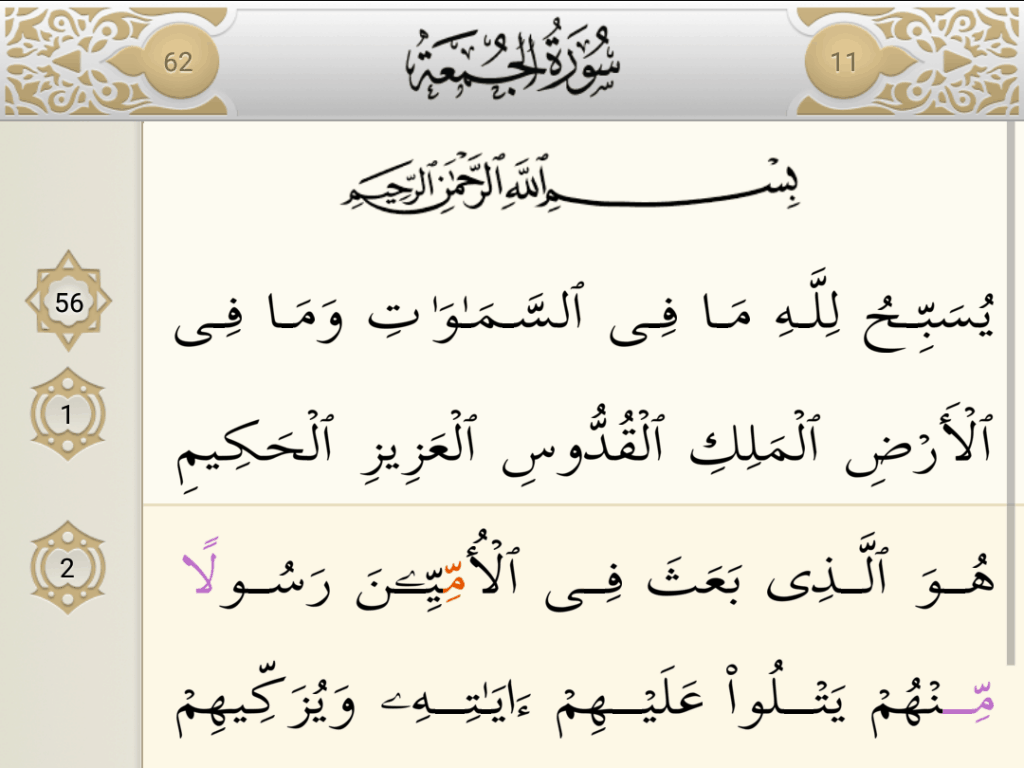 62
سُورَةُ الجُمُعَة
11
بِسْمِ ٱللَّهِ ٱلرَّحْمَٰنِ ٱلرَّحِيمِ
56
يُسَبِّحُ لِلَّهِ مَا فِى ٱلسَّمَٰوَٰتِ وَمَا فِى
1
ٱلْأَرْضِ ٱلْمَلِكِ ٱلْقُدُّوسِ ٱلْعَزِيزِ ٱلْحَكِيمِ
2
هُوَ ٱلَّذِى بَعَثَ فِى ٱلْأُمِّيِّـۧنَ رَسُولًا
مِّنْهُمْ يَتْلُوا۟ عَلَيْهِمْ ءَايَٰتِهِۦ وَيُزَكِّيهِمْ